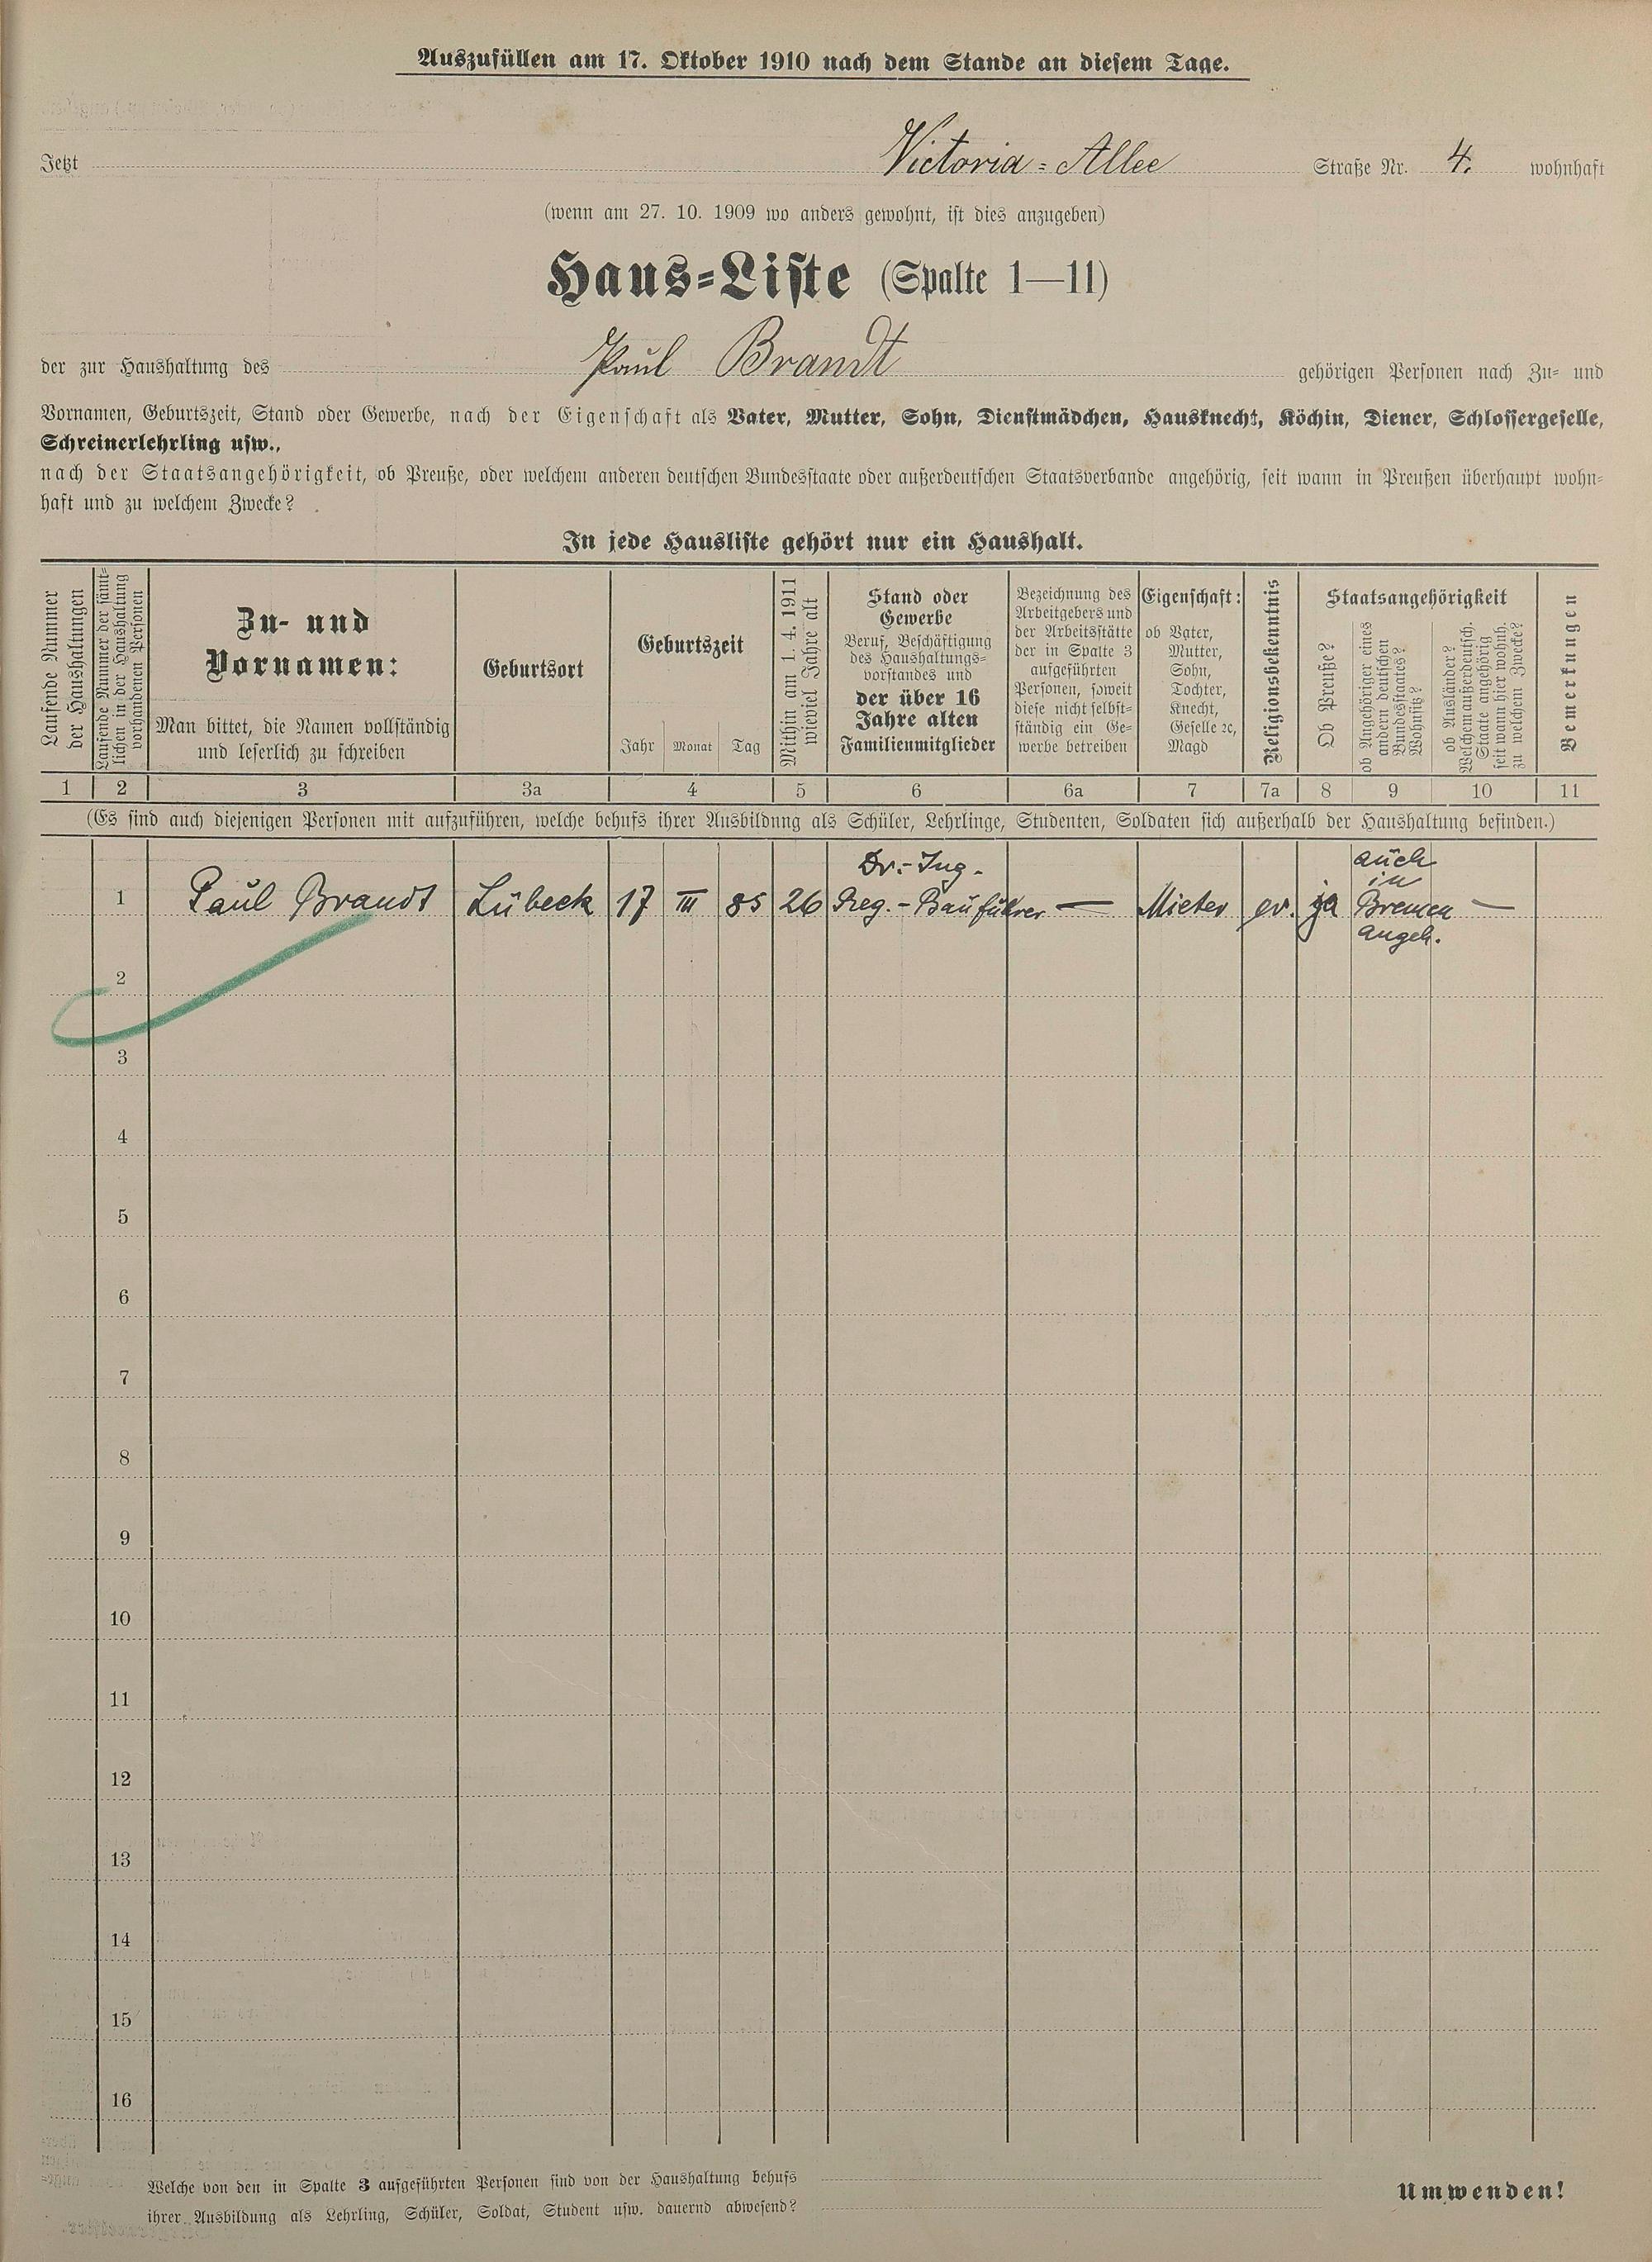 Auszufüllen am 17. Oktober 1910 nach dem Stande an diesem Tage.
Jetzt Victoria-Allee Straße Nr. 4. wohnhaft
(wenn am 27. 10. 1909 wo anders gewohnt, ist dies anzugeben)
Haus-Liste (Spalte 1—11)
der zur Haushaltung des Paul Brandt gehörigen Personen nach Zu- und
Vornamen, Geburtszeit, Stand oder Gewerbe, nach der Eigenschaft als Vater, Mutter, Sohn, Dienstmädchen, Hausknecht, Köchin, Diener, Schlossergeselle,
Schreinerlehrling usw.,
nach der Staatsangehörigkeit, ob Preuße, oder welchem anderen deutschen Bundesstaate oder außerdeutschen Staatsverbande angehörig, seit wann in Preußen überhaupt wohn-
haft und zu welchem Zwecke?
In jede Hausliste gehört nur ein Haushalt.
Laufende Nummer
der Haushaltungen
Laufende Nummer der sämt-
lichen in der Haushaltung
vorhandenen Personen
Zu- und
Vornamen:
Man bittet, die Namen vollständig
und leserlich zu schreiben
Geburtsort
Geburtszeit
Jahr Monat Tag
Mithin am 1. 4. 1911
wieviel Jahre alt
Stand oder
Gewerbe
Beruf, Beschäftigung
des Haushaltungs-
vorstandes und
der über 16
Jahre alten
Familienmitglieder
Bezeichnung des
Arbeitgebers und
der Arbeitsstätte
der in Spalte 3
aufgeführten
Personen, soweit
diese nicht selbst-
ständig ein Ge-
werbe betreiben
Eigenschaft:
ob Vater,
Mutter,
Sohn,
Tochter,
Knecht,
Geselle ec,
Magd
Religionsbekenntnis
Staatsangehörigkeit
Ob Preuße?
ob Angehöriger eines
andern deutschen
Bundesstaates?
Wohnsitz?
ob Ausländer?
Welchem außerdeutsch.
Staate angehörig
seit wann hier wohnh.
zu welchem Zwecke?
Bemerkungen
1 2 3 3a 4 5 6 6a 7 7a 8 9 10 11
(Es sind auch diejenigen Personen mit aufzuführen, welche behufs ihrer Ausbildung als Schüler, Lehrlinge, Studenten, Soldaten sich außerhalb der Haushaltung befinden.)
Dr.-Ing. auch
in
1 Paul Brandt Lübeck 17 III 85 26 Reg.-Bauführer — Mieter ev. ja Bremen —
angeh.
2
3
4
5
6
7
8
9
10
11
12
13
14
15
16
Welche von den in Spalte 3 aufgeführten Personen sind von der Haushaltung behufs
ihrer Ausbildung als Lehrling, Schüler, Soldat, Student usw. dauernd abwesend?
Umwenden!